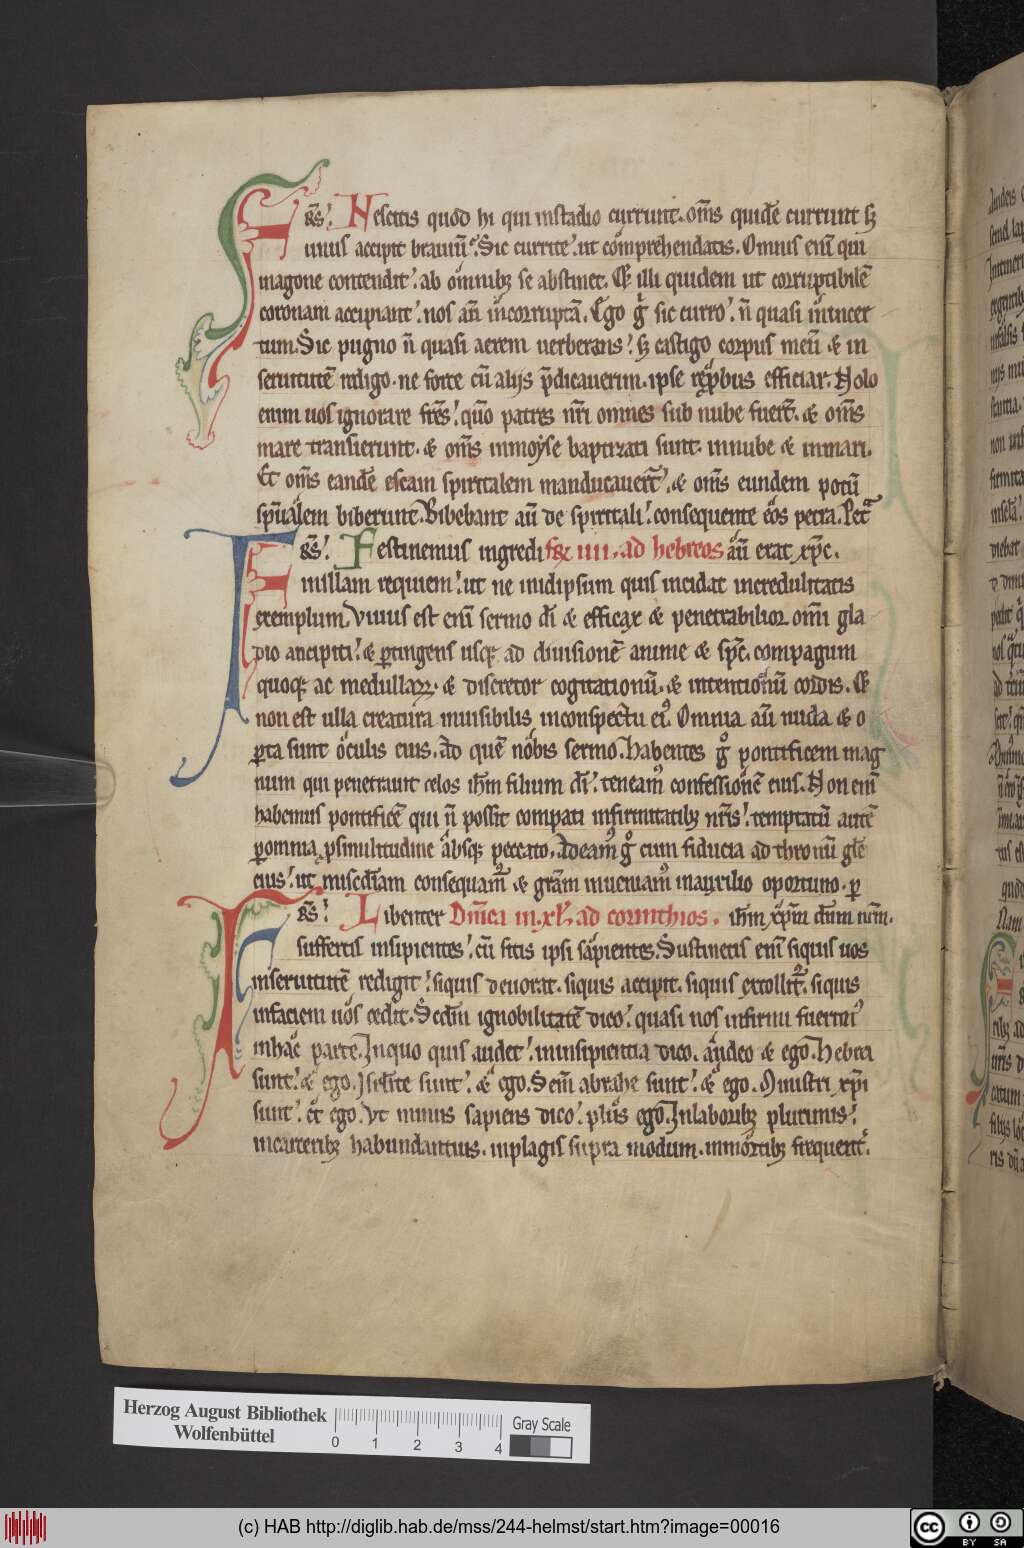 F R̃S. Nescitis quod hi qui instadio currunt. om̃s quidẽ currunt sꝫ
unus accipit brauiũ. Sic currite. ut cõprehendatis. Omnis eni͂ qui
inagone contendit. ab omnibꝫ se abstinet. Et illi quidem ut corruptibilẽ
coronam accipiant. nos aũ incorruptã. Ego g̊ sic curro. ñ quasi inincer
tum. Sic pugno ñ quasi aerem uerberans. sꝫ castigo corpus meũ & in
seruitutẽ redigo. ne forte cũ alijs p̃dicauerim. ipse rep̃bus efficiar. Nolo
enim uos ignorare fr̃es. qũo patres nr̃i omnes sub nube fuer̃. & om̃s
mare transierunt. & om̃s inmoyse baptizati sunt. innube & inmari.
Et om̃s eandẽ escam spiritalem manducauer̃t. & om̃s eundem potũ
sp̃ualem biberunt. Bibebant aũ de spiritali. consequente eos petra. Pet̃
F R̃S. Festinemus ingredi fꝫ iiii. ad hebreos aũ erat xp̃c.
inillam requiem. ut ne inidipsum quis incidat incredulitatis
exemplum. Viuus est eni͂ sermo di͂ & efficax & penetrabilior om̃i gla
dio ancipiti. & ꝑtingens usqꝫ ad diuisionẽ anime & sp̃c. compagum
quoqꝫ ac medullaꝝ. & discretor cogitationũ. & intentionũ cordis. Et
non est ulla creatura inuisibilis inconspectu eiꝰ. Omnia aũ nuda & a
ꝑta sunt oculis eius. Ad quẽ nobis sermo. Habentes g̊ pontificem mag
num qui penetrauit celos ih̃m filium di͂. teneamꝰ confessionẽ eius. Non eni͂
habemus pontificẽ qui ñ possit compati infirmitatibꝫ nr̃is. temptatũ autẽ
ꝑomnia ꝓsimilitudine absqꝫ peccato. Adeamꝰ g̊ cum fiducia ad thronũ gl̃e
eius. ut mis̃ediam consequamꝰ & gr̃am inueniamꝰ inauxilio oportuno. ꝑ
F R̃S. Libenter Dñica in. xl. ad corinthios. ih̃m xp̃m dñm nr̃m.
suffertis insipientes. cũ sitis ipsi sapientes. Sustinetis eni͂ siquis uos
inseruitutẽ redigit. siquis deuorat. siquis accipit. siquis extollit̃. siquis
infaciem uos cedit. Scd̃m ignobilitatẽ dico. quasi nos infirmi fuerimꝰ
inhac parte. Inquo quis audet. ininsipientia dico. audeo & ego. Hebrei
sunt. & ego. Isrl̃ite sunt. & ego. Semẽ abrahe sunt. & ego. Ministri xp̃i
sunt. et ego. Vt minus sapiens dico. plus ego. Inlaboribꝫ plurimis.
incarceribꝫ habundantius. inplagis supra modum. inmortibꝫ frequent̃.
Herzog August Bibliothek
Wolfenbüttel
0 1 2 3 4
Gray Scale
(c) HAB http://diglib.hab.de/mss/244-helmst/start.htm?image=00016
cc BY SA